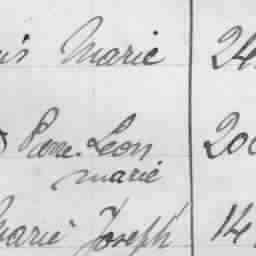 Marie 24
Pierre Léon 20
marie
Marie Joseph 14